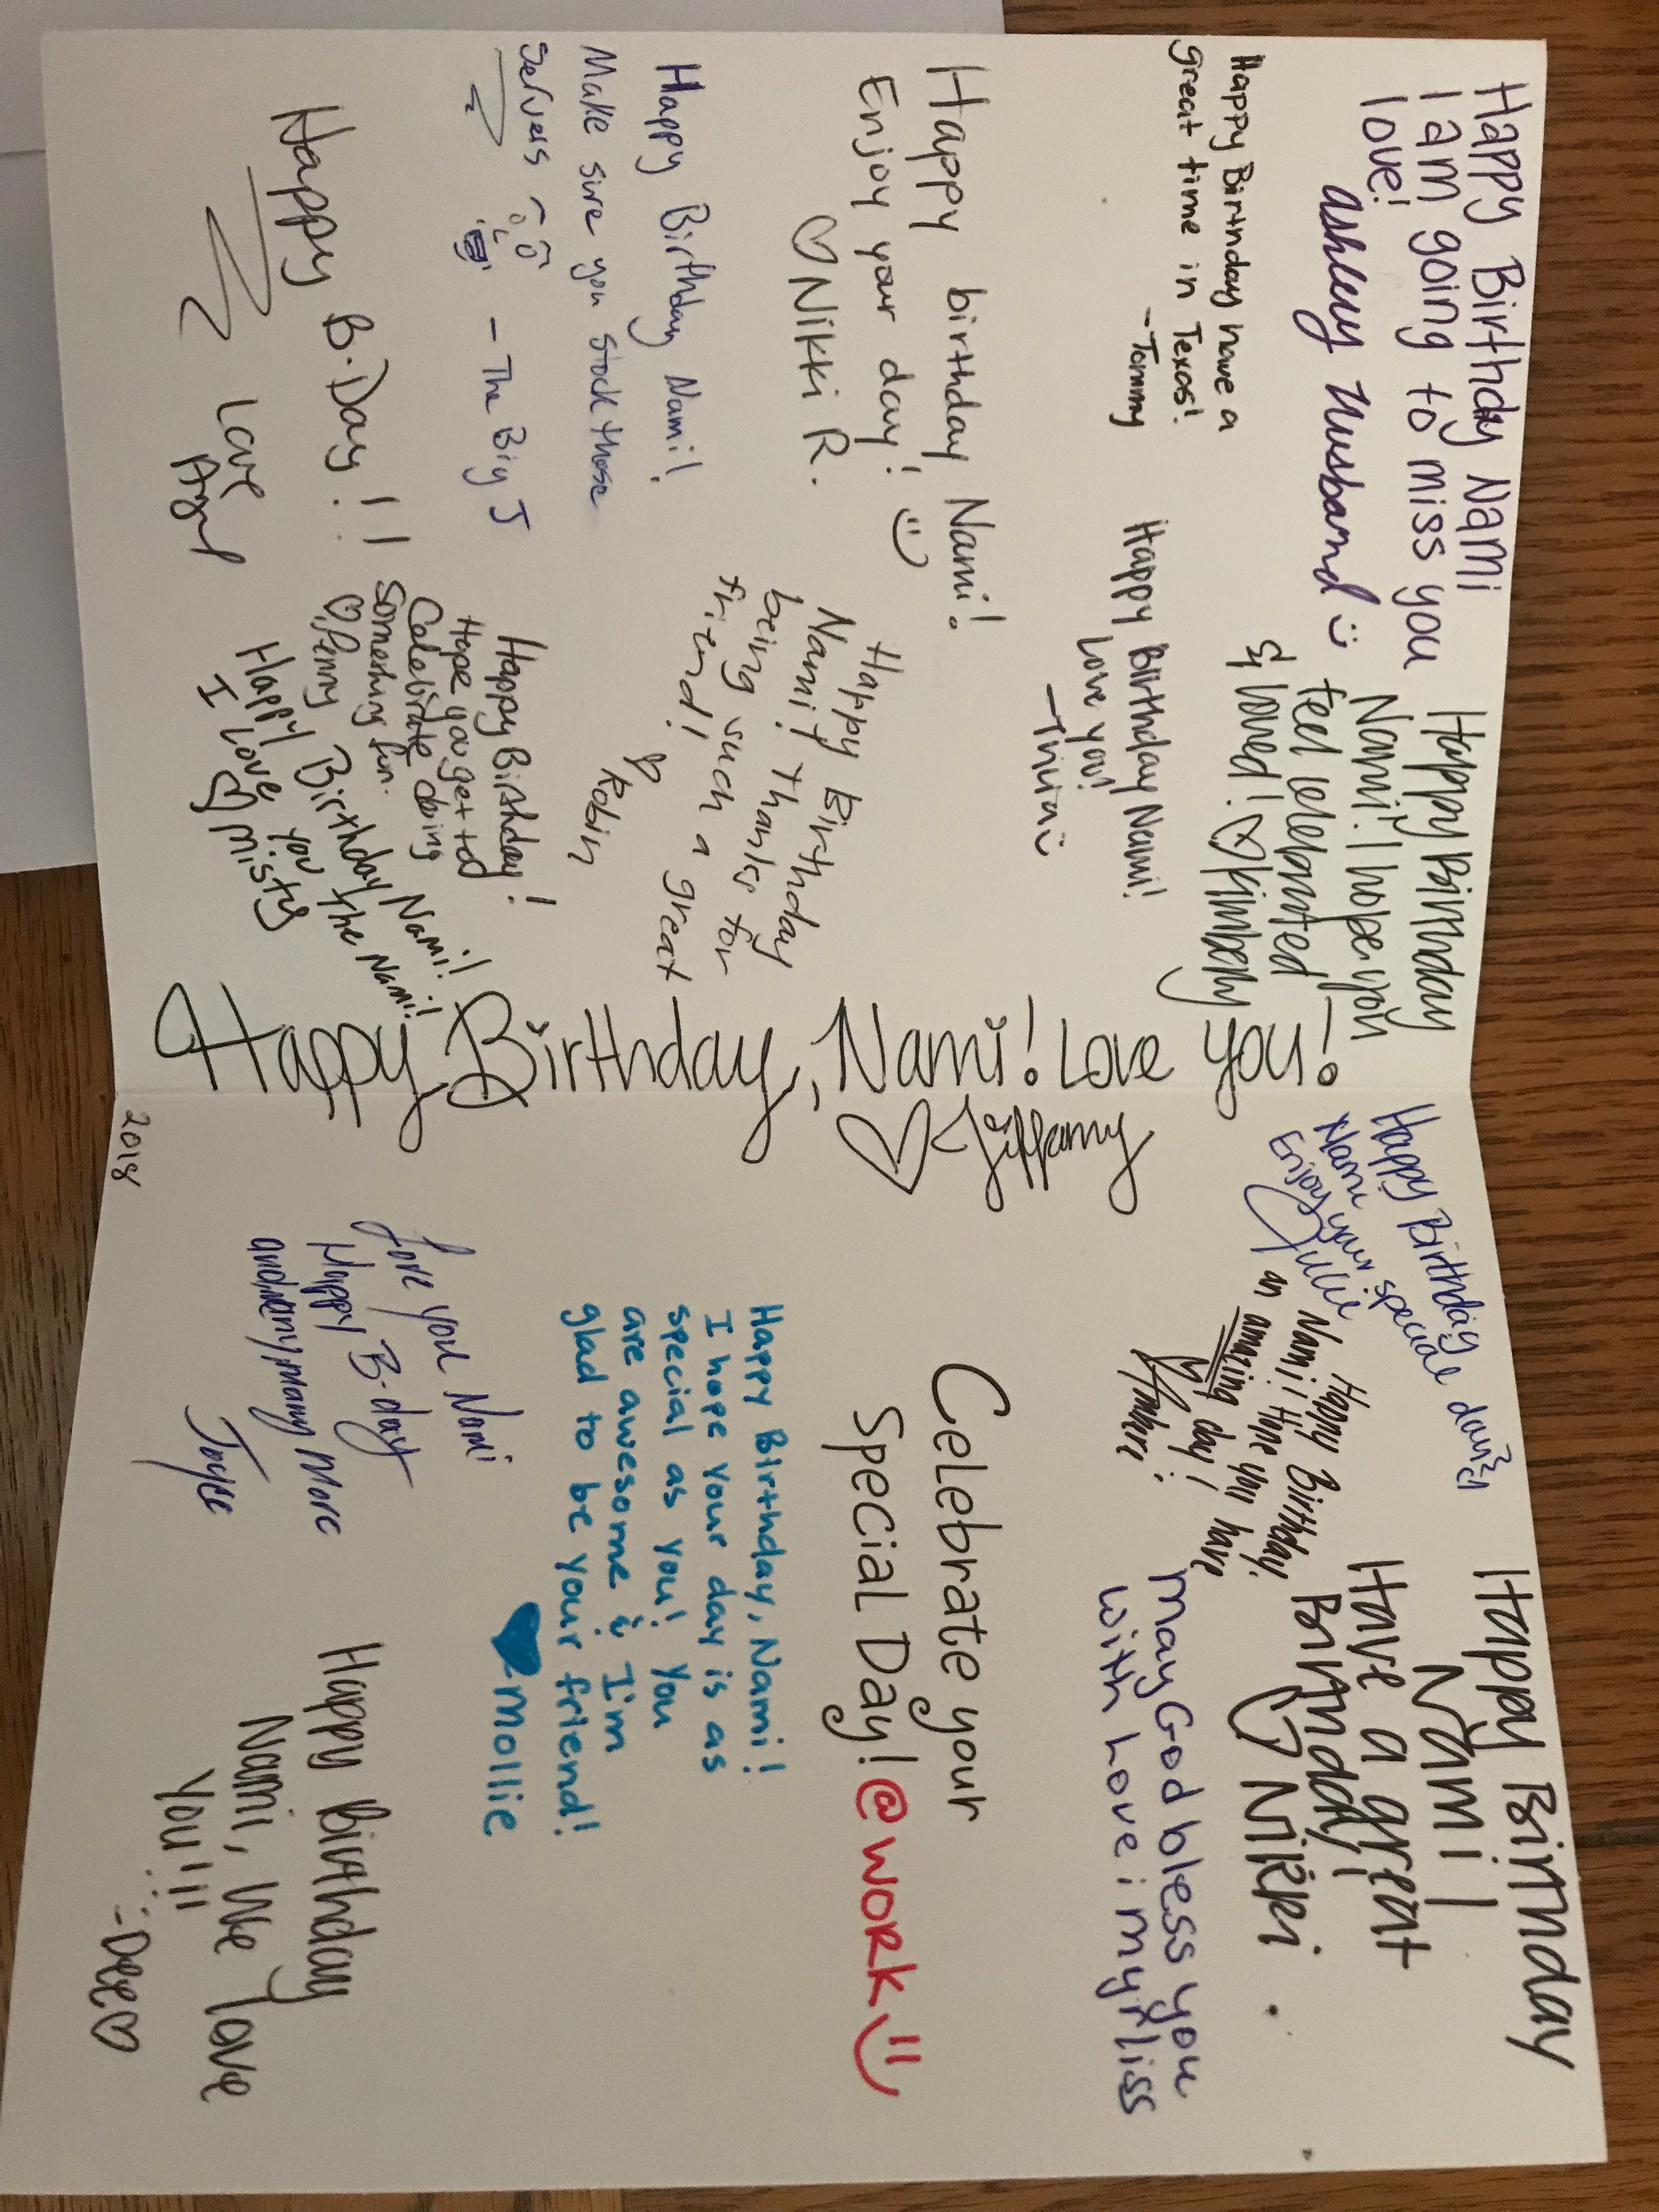 Happy Birthday Nami
I am going to miss you
love!
ashley Husband
Happy Birthday have a
great time in Texas!
-Tommy
Happy birthday Nami!
Enjoy your day!
♡ Nikki R.
Happy Birthday Nami!
Make sure you stock those
servers
- The Big J
Happy B-Day!!
Love
Happy Birthday
Nami! I hope you
feel celebrated
& loved! ♡ Kimberly
Happy Birthday Nami!
Love you!
Happy Birthday
Nami! Thanks for
being such a great
friend!
Robin
Happy Birthday!
Hope you get to
Celebrate doing
something fun.
♡ Penny
Happy Birthday Nami!
I Love you the Nami!
♡ Misty
Happy Birthday, Nami! Love you!
♡ Tiffany
2018
Happy Birthday
Nami enjoy
your special day
Julie
Happy Birthday,
Nami! Hope you have
an amazing day!
Happy Birthday
Nami!
Have a great
Birthday!
Nikki
May God bless you
with love
Celebrate your
Special Day! @work
Happy Birthday, Nami!
I hope your day is as
special as you! You
are awesome & I'm
glad to be your friend!
-Mollie
Love you Nami
Happy B-day
and many, many More
Joyce
Happy Birthday
Nami, We love
you!!!
-Dee♡